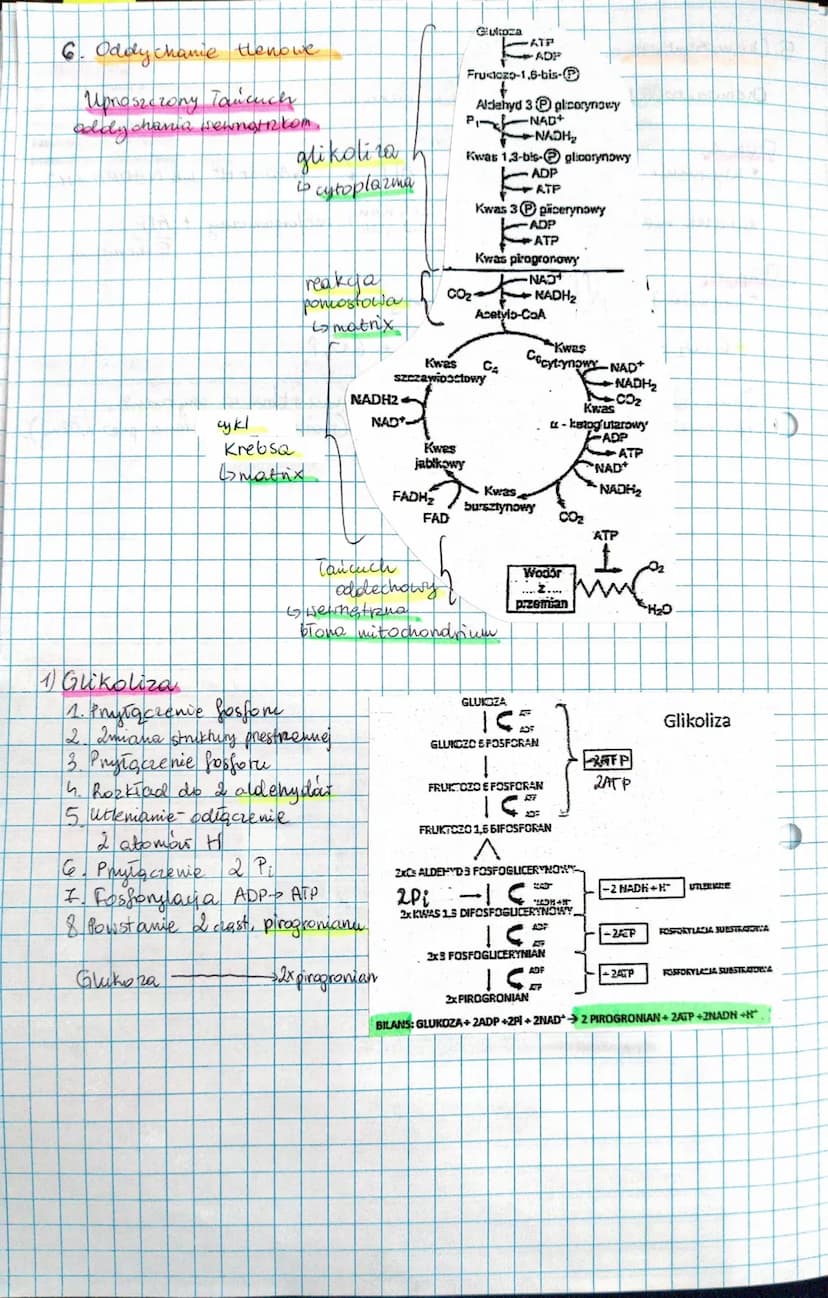 6. Oddychanie tlenowe
Uproszczony Łańcuch
oddychania wewnątrzkom.
glikoliza
↳ cytoplazma
Glukoza
ATP
ADP
Fruktozo-1,6-bis-Ⓟ
Aldehyd 3 Ⓟ glicerynowy
Pi
NAD+
NADH2
Kwas 1,3-bis-Ⓟ glicerynowy
ADP
ATP
Kwas 3 Ⓟ glicerynowy
ADP
ATP
Kwas pirogronowy
reakcja
pomostowa
↳ matrix
NAD+
CO2
NADH2
Acetylo-CoA
cykl
Krebsa
↳ matrix
Kwas
szczawiooctowy
C4
Kwas
C6 cytrynowy
NAD+
NADH2
CO2
Kwas
α - ketoglutarowy
ADP
ATP
NAD+
NADH2
CO2
Kwas
bursztynowy
FADH2
FAD
Kwas
jabłkowy
NADH2
NAD+
Łańcuch
oddechowy
↳ wewnętrzna
błona mitochondrium
Wodór
.... z ....
przemian
ATP
O2
H2O
1) Glikoliza
1. Przyłączenie fosforu
2. Zmiana struktury przestrzennej
3. Przyłączenie fosforu
4. Rozkład do 2 aldehydów
5. Utlenianie - odłączenie
2 atomów H
6. Przyłączenie 2 Pi
7. Fosforylacja ADP → ATP
8. Powstanie 2 cząst. pirogronianu
Glukoza → 2x pirogronian
Glikoliza
GLUKOZA
ATP
ADP
GLUKOZO 6 FOSFORAN
FRUKTOZO 6 FOSFORAN
ATP
ADP
FRUKTOZO 1,6 BIFOSFORAN
2ATP
2xC3 ALDEHYD 3 FOSFOGLICERYNOWY
2Pi
NADH+H+
2x KWAS 1.3 DIFOSFOGLICERYNOWY
2 NADH+H+
UTLENIANIE
ADP
ATP
2ATP
FOSFORYLACJA SUBSTRATOWA
2x 3 FOSFOGLICERYNIAN
ADP
ATP
2ATP
FOSFORYLACJA SUBSTRATOWA
2x PIROGRONIAN
BILANS: GLUKOZA + 2ADP +2Pi + 2NAD+ → 2 PIROGRONIAN + 2ATP +2NADH +H+